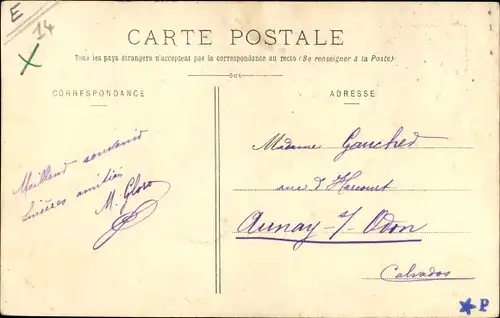 E
14
CARTE POSTALE
Tous les pays étrangers n'acceptent pas la correspondance au recto (Se renseigner à la Poste)
CORRESPONDANCE
ADRESSE
Meilleur souvenir
Sincères amitiés
M.
Madame Gauched
rue d'Harcourt
Aunay s/ Odon
Calvados
P